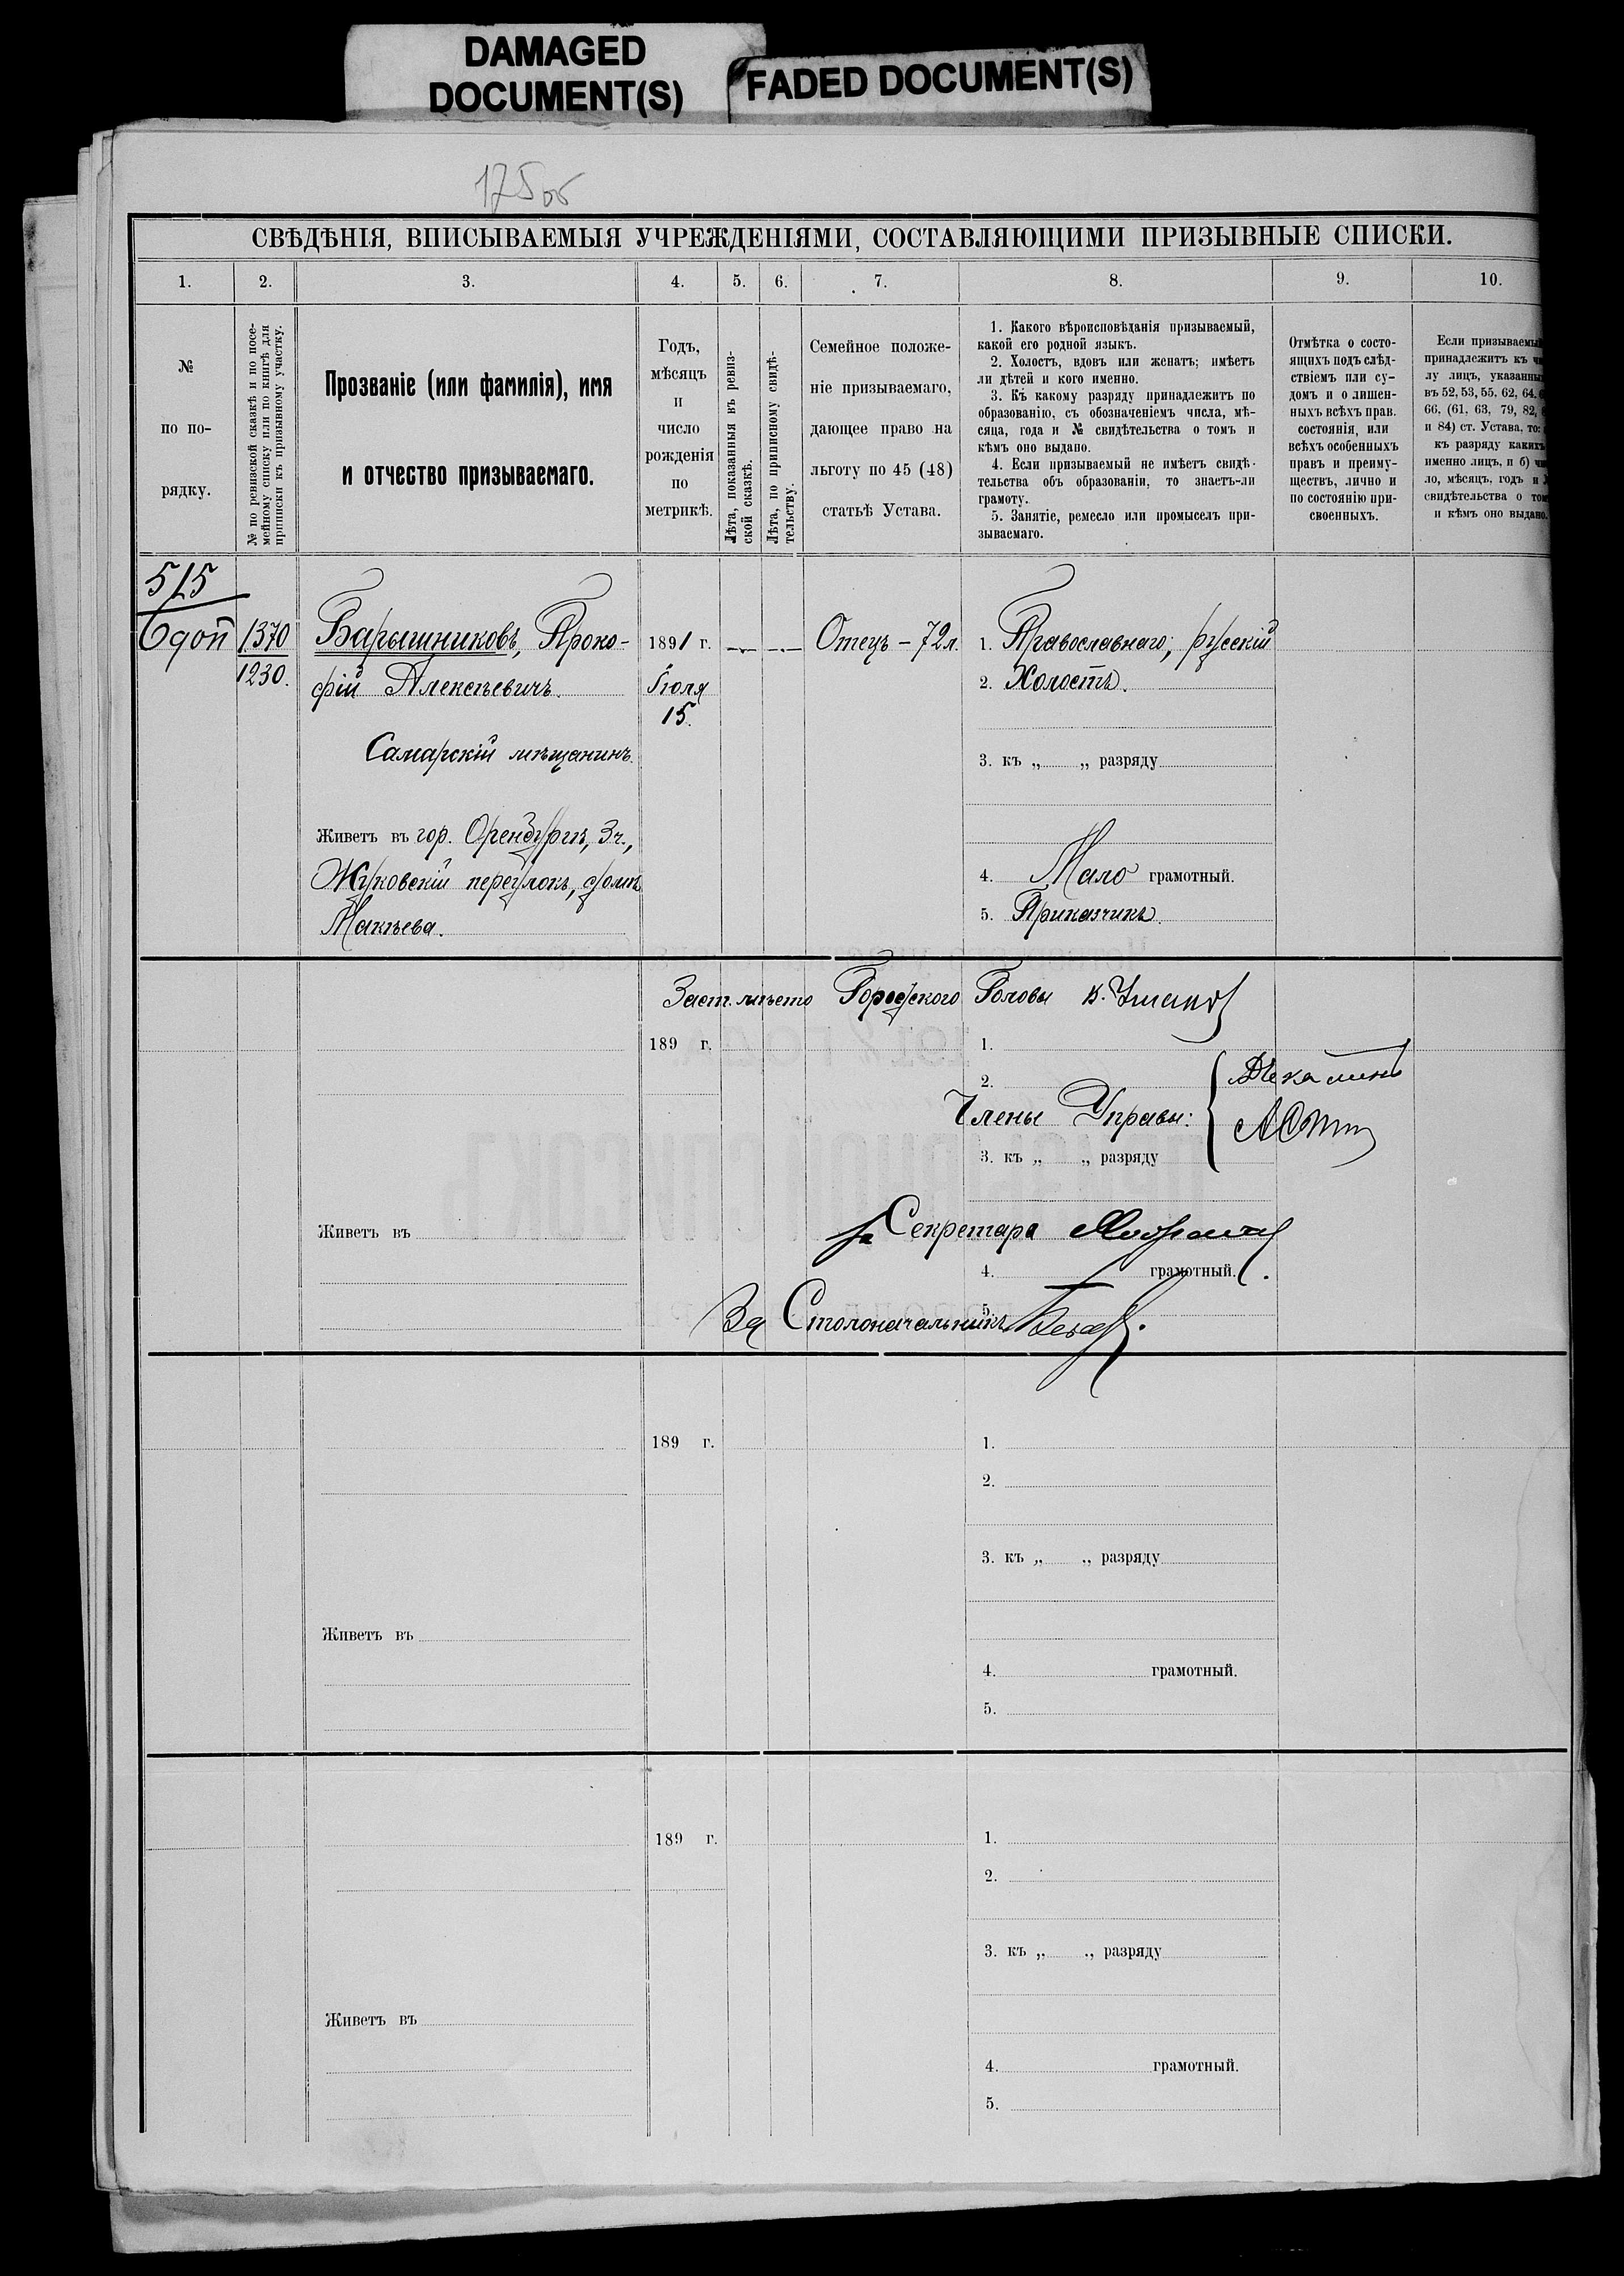 DAMAGED
DOCUMENT(S)
FADED DOCUMENT(S)
175 об
СВѢДѢНІЯ, ВПИСЫВАЕМЫЯ УЧРЕЖДЕНІЯМИ, СОСТАВЛЯЮЩИМИ ПРИЗЫВНЫЕ СПИСКИ.
1. 2. 3. 4. 5. 6. 7. 8. 9. 10.
№
по по-
рядку.
№ по ревизской сказкѣ и по посе-
мейному списку или по книгѣ для
приписки къ призывному участку.
Прозваніе (или фамилія), имя
и отчество призываемаго.
Годъ,
мѣсяцъ
и
число
рожденія
по
метрикѣ.
Лѣта, показанныя въ ревиз-
ской сказкѣ.
Лѣта, по приписному свидѣ-
тельству.
Семейное положе-
ніе призываемаго,
дающее право на
льготу по 45 (48)
статьѣ Устава.
1. Какого вѣроисповѣданія призываемый,
какой его родной языкъ.
2. Холостъ, вдовъ или женатъ; имѣетъ
ли дѣтей и кого именно.
3. Къ какому разряду принадлежитъ по
образованію, съ обозначеніемъ числа, мѣ-
сяца, года и № свидѣтельства о томъ и
кѣмъ оно выдано.
4. Если призываемый не имѣетъ свидѣ-
тельства объ образованіи, то знаетъ-ли
грамоту.
5. Занятіе, ремесло или промыселъ при-
зываемаго.
Отмѣтка о состо-
ящихъ подъ слѣд-
ствіемъ или су-
домъ и о лишен-
ныхъ всѣхъ прав.
состоянія, или
всѣхъ особенныхъ
правъ и преиму-
ществъ, лично и
по состоянію при-
своенныхъ.
Если призываемый
принадлежитъ къ
лу лицъ, указанны
въ 52, 53, 55, 62, 64,
66, (61, 63, 79, 82,
и 84) ст. Устава, то:
къ разряду какихъ
именно лицъ, и б)
ло, мѣсяцъ, годъ и
свидѣтельства о том
и кѣмъ оно выдано.
515
6 доп
1370
1230.
Барышниковъ, Проко-
фій Алексѣевичъ.
Самарскій мѣщанинъ.
Живетъ въ гор. Оренбургѣ, 3 ч.,
Жуковскій переулокъ, домъ
Макѣева.
1891 г.
Іюля
15.
Отецъ – 72 л.
1. Православнаго, русскій
2. Холостъ.
3. къ „ „ разряду
4. Мало грамотный.
5. Приказчикъ.
Заст. мѣсто Городского Головы
189 г.
1.
2.
Члены Управы:
3. къ „ „ разряду
Живетъ въ
за Секретаря
4. грамотный.
5.
За Столоначальника
189 г.
1.
2.
3. къ „ „ разряду
Живетъ въ
4. грамотный.
5.
189 г.
1.
2.
3. къ „ „ разряду
Живетъ въ
4. грамотный.
5.